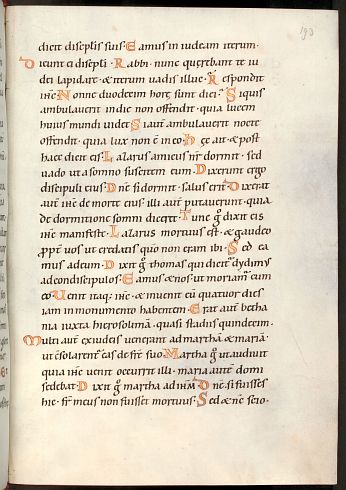 193
dicit discipĺis suis· Eamus in iudeam iterum·
Dicunt ei discipĺi· Rabbi· nunc querebant te iu
dei lapidare· & iterum uadis illuc· Respondit
ihc· Nonne duodecim horę sunt diei· Siquis
ambulauerit indie non offendit· quia lucem
huius mundi uidet· Siaut̄ ambulauerit nocte
offendit· quia lux non ē in eo· hęc ait· & post
hacc dicit eis· Lazarus amicus nr̄ dormit· sed
uado ut a somno suscitem eum· Dixerunt ergo
discipuli eius· Dn̄e si dormit· saluus erit· Dixerat
aut̄ ihc de morte eius· illi aut̄ putauerunt· quia
de dormitione somni diceret· Tunc g̊ dixit eis
ihc manifeste· Lazarus mortuus est· & gaudeo
propt̄ uos ut credatis quō non eram ibi· Sed ea
mus adeum· Dixit g̊ thomas qui dicit̄ didymus
adcondiscipulos· Eamus & nos· ut moriam̄ cum
eo· Uenit itaq; ihc· & inuenit eū quatuor dies
iam in monumento habentem· Erat aut̄ betha
nia iuxta hierosolimā· quasi stadiis quindecim·
Multi aut̄ exiudeis uenerant admarthā & mariā·
ut c̄solarent̄ eas de fr̄e suo· Martha g̊ ut audiuit
quia ihc uenit occurrit illi· maria aut̄ domi
sedebat· Dixit g̊ martha ad ihm̄· Dn̄e· si fuisses
hic· fr̄ meus non fuisset mortuus· Sed & nc̄ scio·